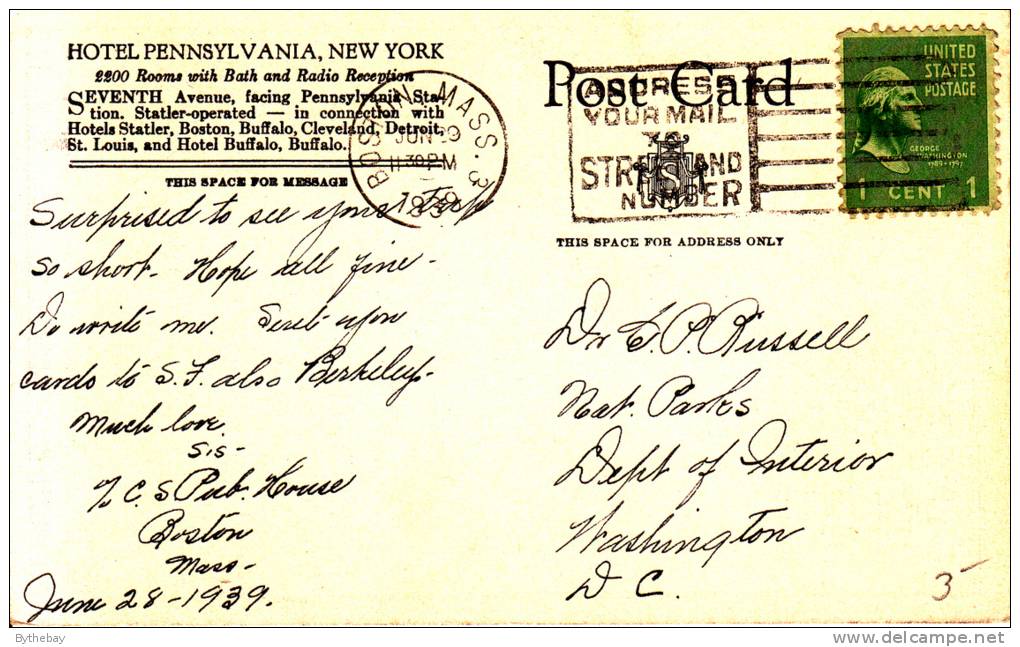 HOTEL PENNSYLVANIA, NEW YORK
2200 Rooms with Bath and Radio Reception
SEVENTH Avenue, facing Pennsylvania Sta-
tion. Statler-operated — in connection with
Hotels Statler, Boston, Buffalo, Cleveland, Detroit,
St. Louis, and Hotel Buffalo, Buffalo.
THIS SPACE FOR MESSAGE
Surprised to see your trip
so short. Hope all fine -
Do write me. Sent you
cards to S.F. also Berkeley.
Much love.
Sis -
% C. S Pub. House
Boston
Mass -
June 28 - 1939.
BOSTON, MASS. 3
JUN 29
11 30 PM
1939
Post Card
ADDRESS
YOUR MAIL
TO
STREET AND
NUMBER
S
UNITED
STATES
POSTAGE
GEORGE
WASHINGTON
1789-1797
1 CENT 1
THIS SPACE FOR ADDRESS ONLY
Dr C. P. Russell
Nat. Parks
Dept of Interior
Washington
D C.
3-
Bythebay
www.delcampe.net